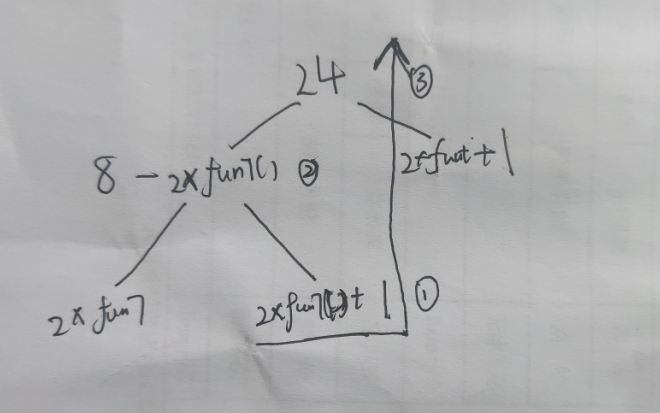 24 ③
8 — 2×fun7() ② 2×fun7+1
2×fun7 2×fun7()+1 ①